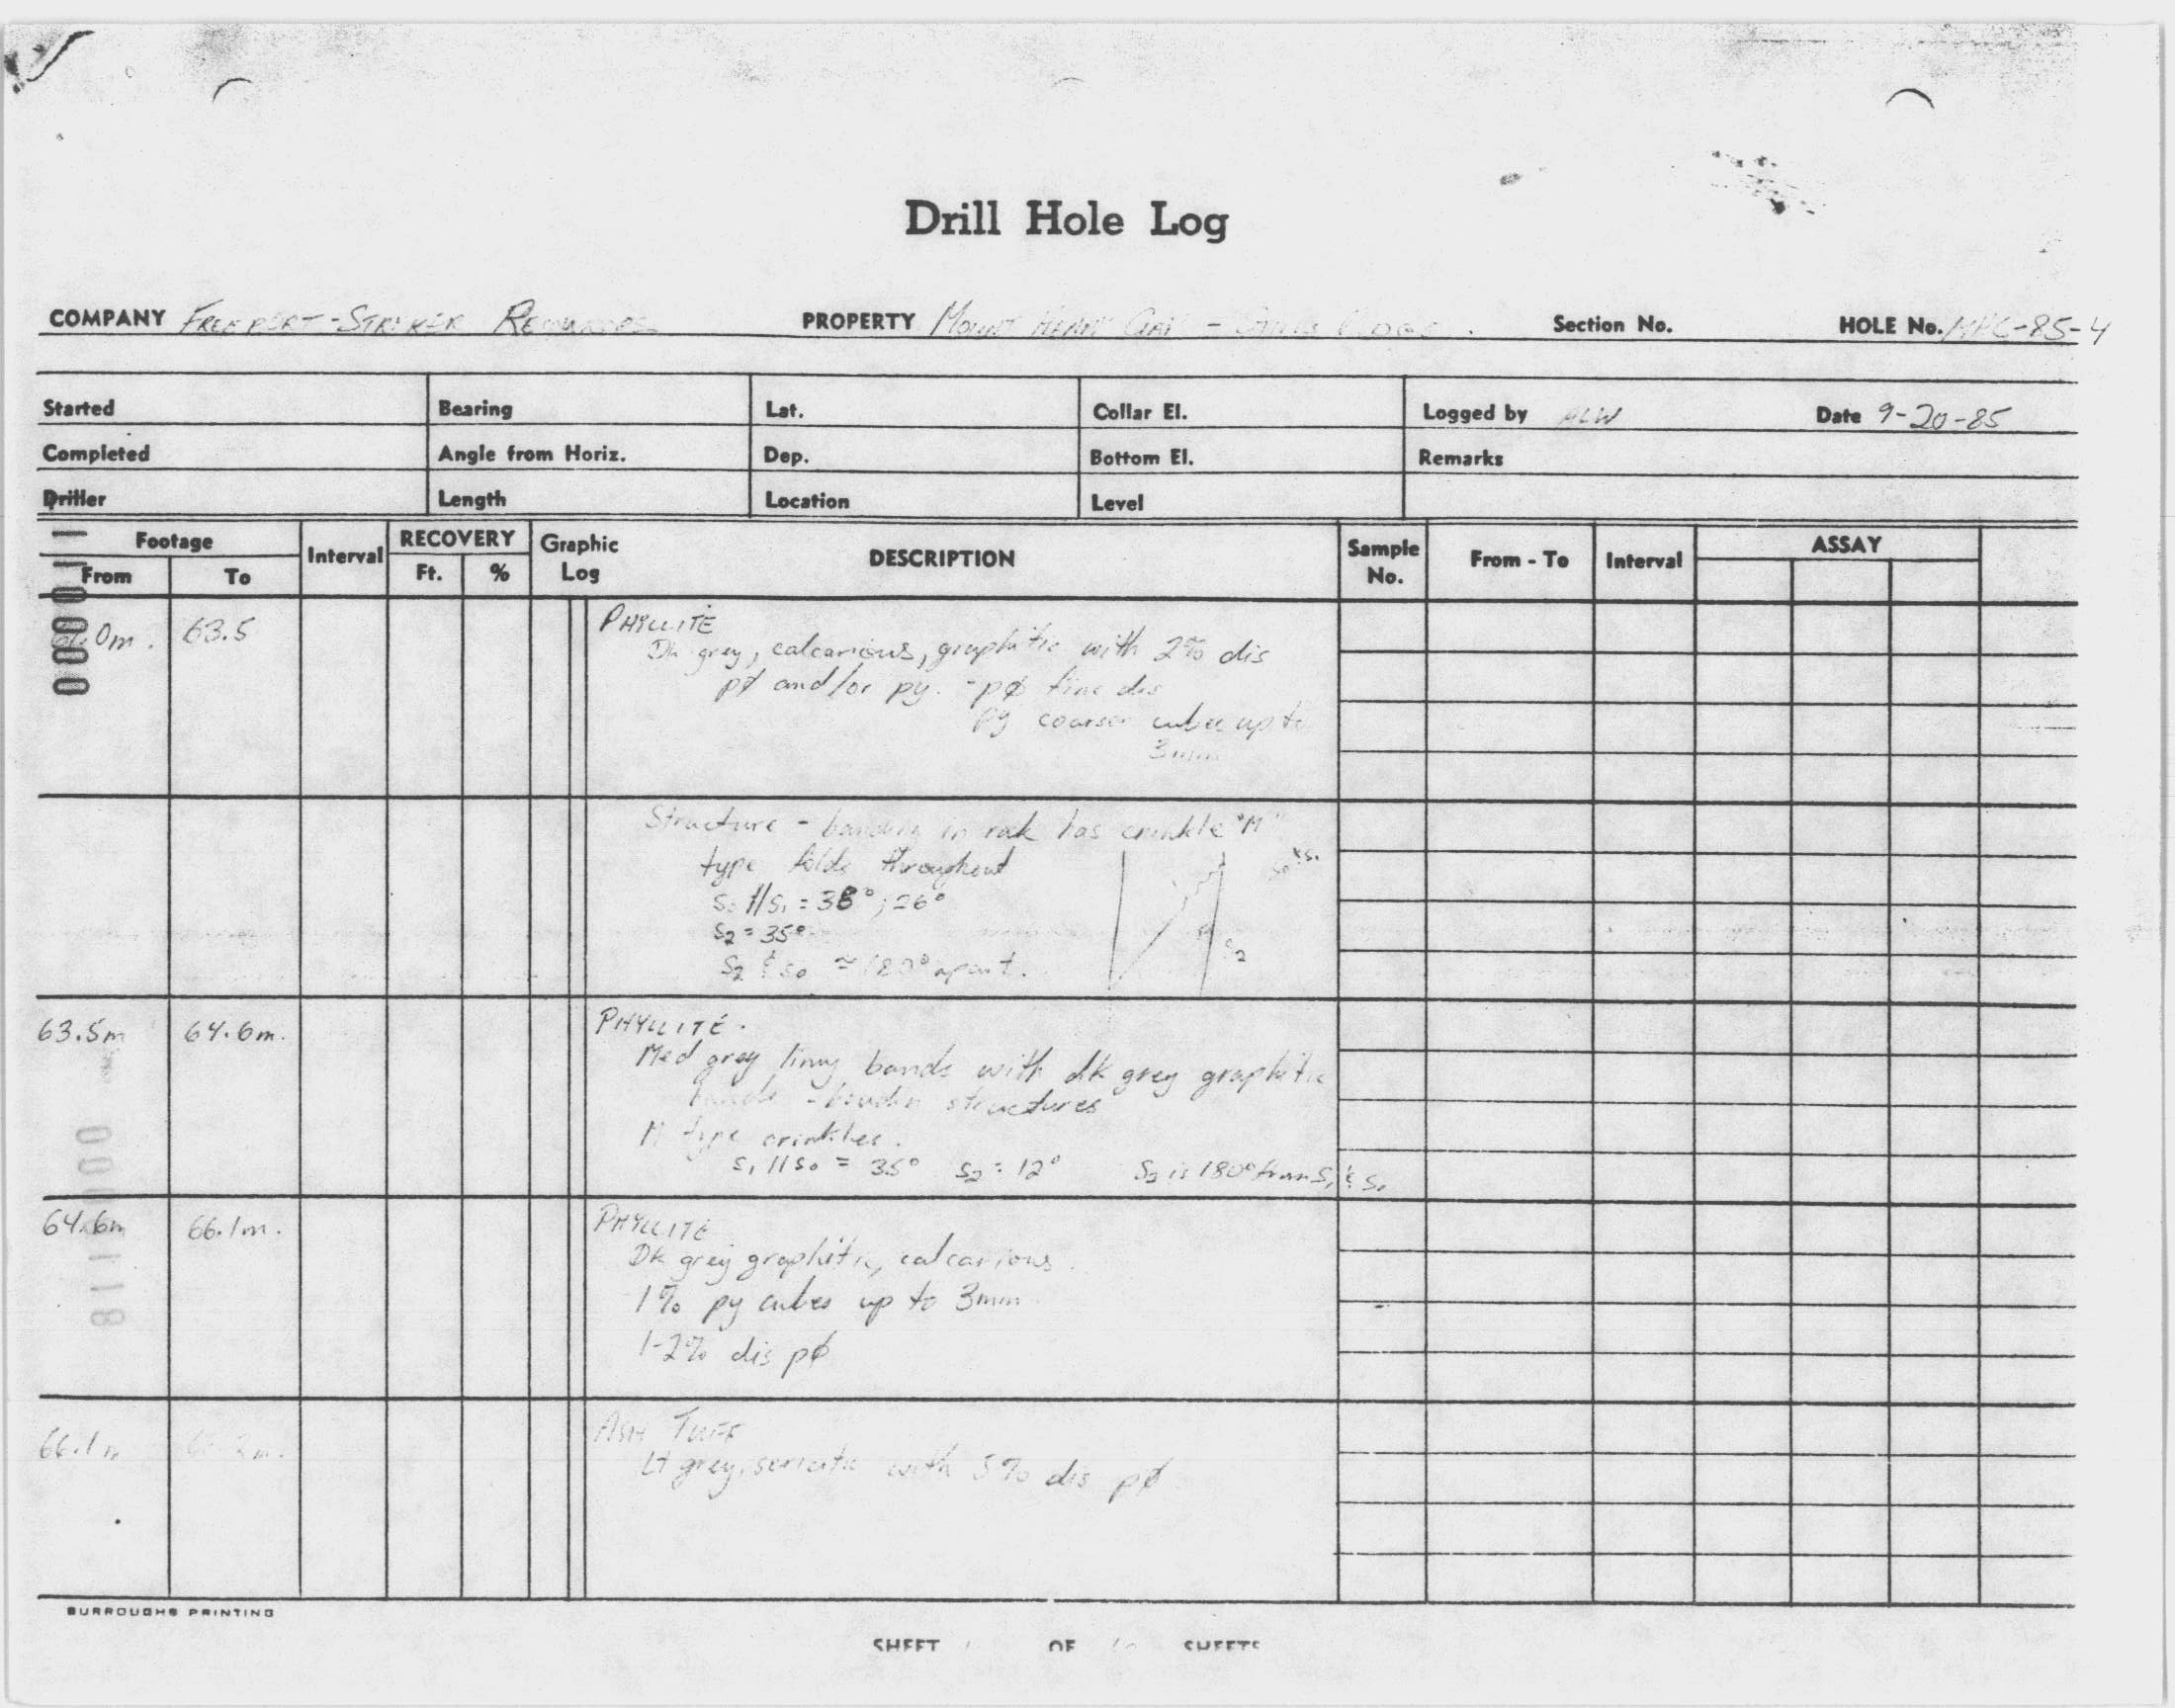 Drill Hole Log
COMPANY FREEPORT-STRIKER RESOURCES PROPERTY MOUNT Section No. HOLE No. -85-4
Started Bearing Lat. Collar El. Logged by Date 9-20-85
Completed Angle from Horiz. Dep. Bottom El. Remarks
Driller Length Location Level
Footage Interval RECOVERY Graphic Log DESCRIPTION Sample No. From - To Interval ASSAY
From To Ft. %
63.5 PHYLLITE
Dk grey, calcarious, graphitic with 2% dis
pø and/or py. - pø fine dis
py coarser cubes up to
3mm
Structure - banding in rock has crinkle "M"
type folds throughout
S₀ // S₁ = 38°; 26°
S₂ = 35°
S₂ & S₀ ≈ 180° apart.
S₀ & S₁
S₂
63.5m 64.6m. PHYLLITE.
Med grey limy bands with dk grey graphitic
bands - boudin structures
M type crinkles.
S₁ // S₀ = 35° S₂ = 12° S₂ is 180° from S₁ & S₀
64.6m 66.1m. PHYLLITE
Dk grey graphitic, calcarious.
1% py cubes up to 3mm
1-2% dis pø
66.1m ASH TUFF
Lt grey, sericitic with 5% dis pø
BURROUGHS PRINTING
SHEET OF SHEETS